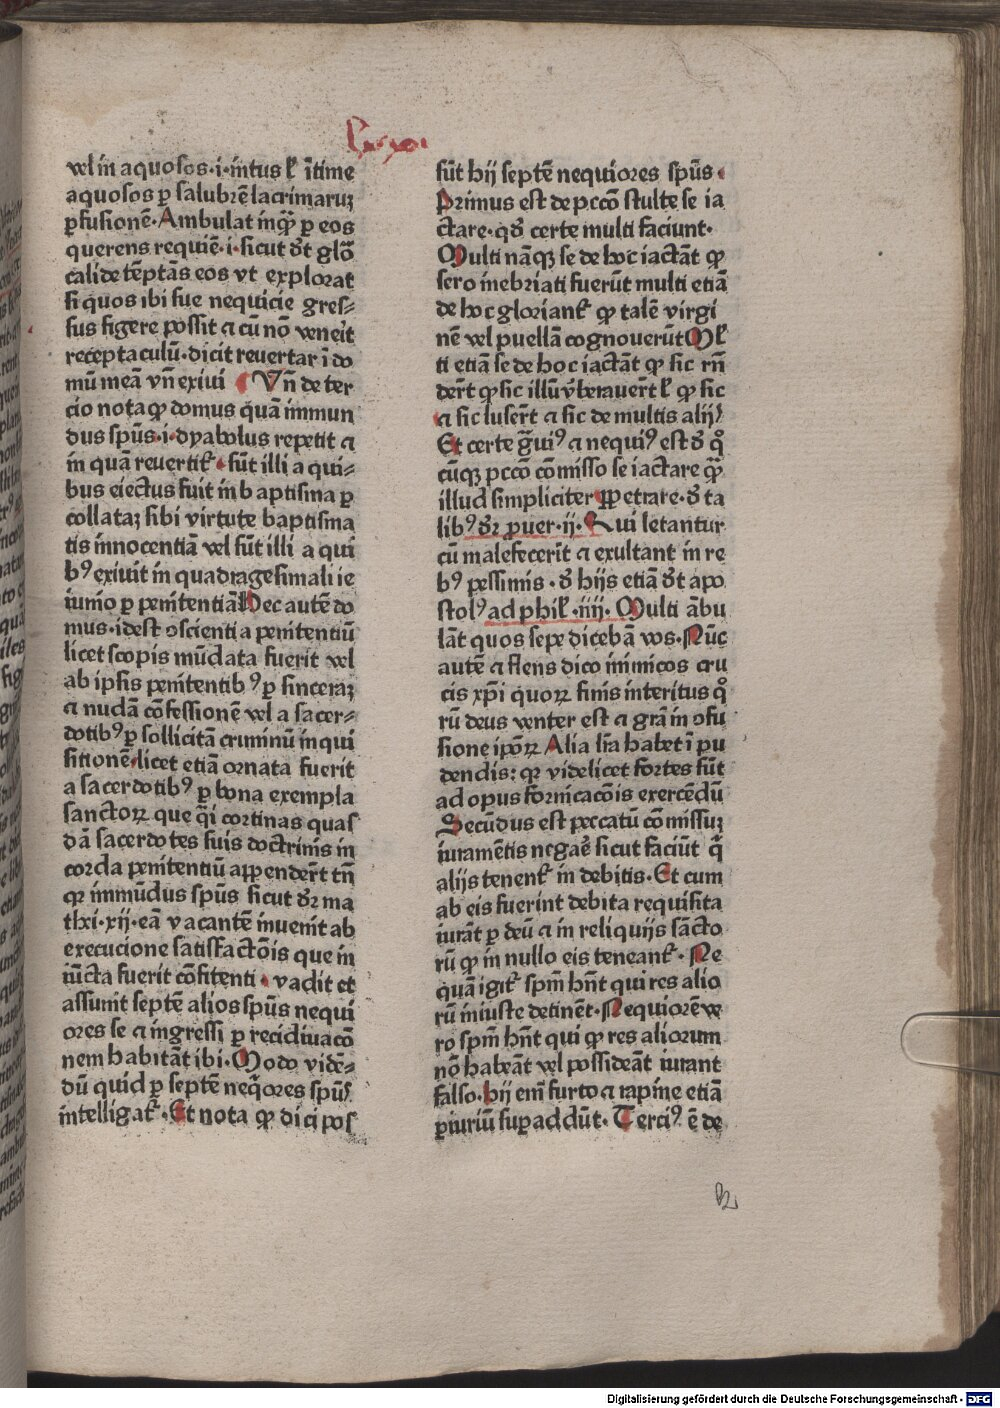 vel in aquosos·i·intus vel ītime
aquosos ꝑ salubrē lacrimaruꝫ
ꝑfusionē·Ambulat inqͥꝫ ꝑ eos
querens requiē·i·sicut dīt glō
calide tēptās eos vt explorat
si quos ibi sue nequicie gres⸗
sus figere possit ⁊ cū nō veneīt
receptaculū·dicit reuertar ī do
mū meā vn̄ exiui Vn̄ de ter
cio nota ꝙ domus quā immun
dus spūs·i·dyabolus repetit ⁊
in quā reuertit᷑·sūt illi a qui⸗
bus eiectus fuit in baptisma ꝑ
collataꝫ sibi virtute baptisma
tis innocentiā vel sūt illi a qui
bꝰ exiuit in quadragesimali ie
iunio ꝑ penitentiā Hec autē do
mus·idest ɔscientia penitentiū
licet scopis mūdata fuerit vel
ab ipsis penitentibꝰ ꝑ sinceraꝫ
⁊ nudā cōfessionē vel a sacer⸗
dotibꝰ ꝑ sollicitā criminū inqui
sitionē·licet etiā ornata fuerit
a sacerdotibꝰ ꝑ bona exempla
sanctoꝝ que q̄i cortinas quas
dā sacerdotes suis doctrinis in
corda penitentiū appendēt tn̄
qꝛ immūdus spūs sicut dꝛ ma
thxi·xij·eā vacantē inuenit ab
execucione satisfactōis que in
iūcta fuerit cōfitenti·vadit et
assumit septē alios spūs nequi
ores se ⁊ ingressi ꝑ recidiuacō
nem habitāt ibi·Modo vidē⸗
dū quid ꝑ septē neqͥores spūs
intelligat᷑·Et nota ꝙ dici pos
sūt hij septē nequiores spūs·
Primus est de pccō stulte se ia
ctare·qd̄ certe multi faciunt·
Multi nāqꝫ se de hoc iactāt ꝙ
sero inebriati fuerūt multi etiā
de hoc gloriant᷑ ꝙ talē virgi
nē vel puellā cognouerūt Mƚ
ti etiā se de hoc iactāt ꝙ sic rn̄
dert̄ ꝙ sic illū v̄berauert̄ ƚ ꝙ sic
⁊ sic lusert̄ ⁊ sic de multis alijs
Et certe gͣuiꝰ ⁊ nequiꝰ est d̄ qͦ
cūqꝫ pccō cōmisso se iactare qͣꝫ
illud simpliciter ꝑpetrare·d̄ ta
libꝰ dꝛ ꝓuer·ij·Qui letantur
cū malefecerīt ⁊ exultant in re
bꝰ pessimis·d̄ hijs etiā dīt apo
stolꝰ ad phiƚ·iij·Multi ābu
lāt quos sepe dicebā vos·Nūc
autē ⁊ flens dico inimicos cru
cis xp̄i quoꝝ finis interitus qͦ
rū deus venter est ⁊ grā in ɔfu
sione ipōꝝ Alia lr̄a habet ī pu
dendis: qꝛ videlicet fortes sūt
ad opus fornicacōis exercēdū
Secūdus est peccatū cōmissuꝫ
iuramētis negae᷑ sicut faciūt qͥ
alijs tenent᷑ in debitis·Et cum
ab eis fuerint debita requisita
iurāt ꝑ deū ⁊ in reliquijs sācto
rū ꝙ in nullo eis teneant᷑·Ne
quā igit᷑ spm̄ hn̄t qui res alio
rū iniuste detinēt·Nequiorē ve
ro spm̄ hn̄t qui ꝙ res aliorum
nō habeāt vel possideāt iurant
falso·hij enī furto ⁊ rapine etiā
ꝑiuriū supaddūt·Terciꝰ ē de
Digitalisierung gefördert durch die Deutsche Forschungsgemeinschaft - DFG